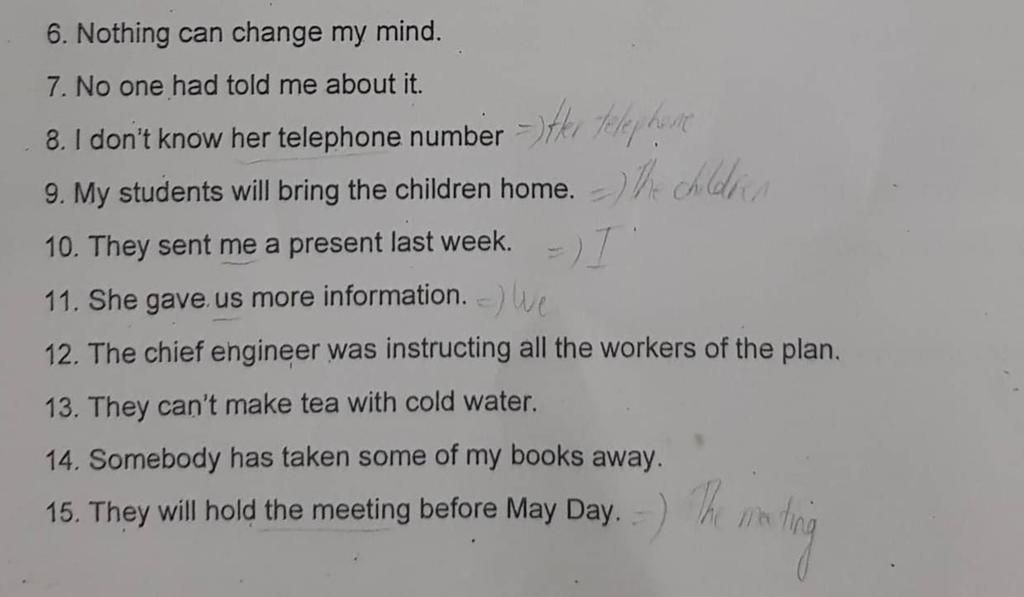 6. Nothing can change my mind.
7. No one had told me about it.
8. I don't know her telephone number =) Her telephone
9. My students will bring the children home. =) The children
10. They sent me a present last week. =) I
11. She gave us more information. =) We
12. The chief engineer was instructing all the workers of the plan.
13. They can't make tea with cold water.
14. Somebody has taken some of my books away.
15. They will hold the meeting before May Day. =) The meeting